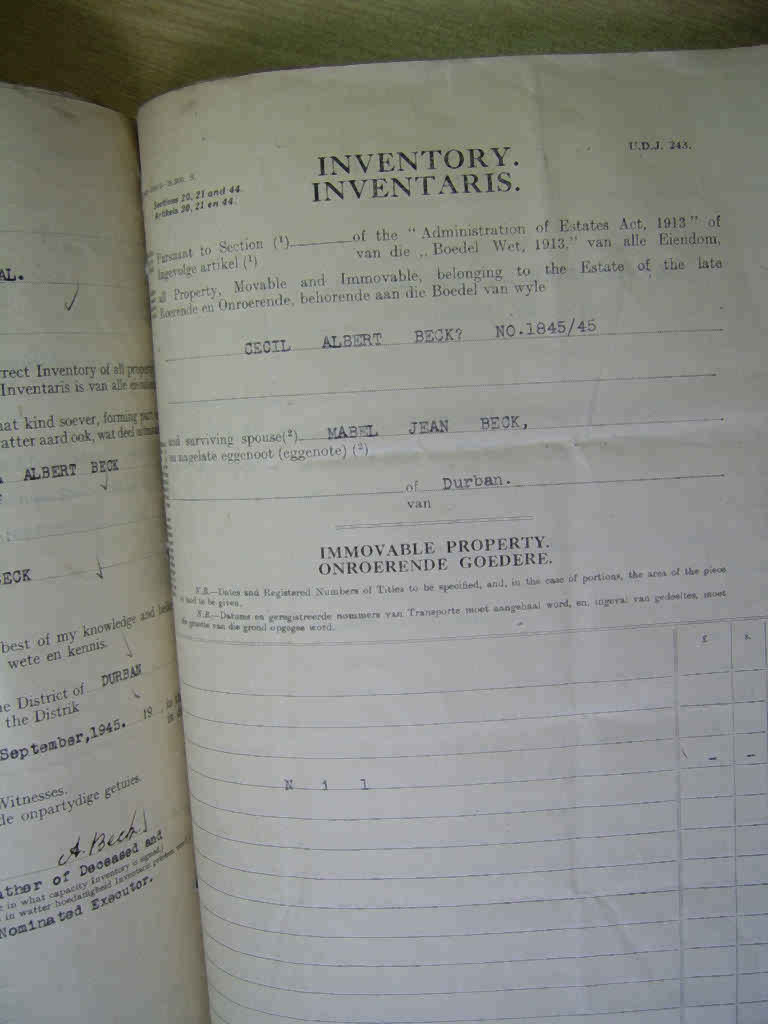 AL.
rrect Inventory of all
Inventaris is van alle
hat kind soever, forming part
vatter aard ook, wat deel
ALBERT BECK
BECK
best of my knowledge and
wete en kennis.
he District of DURBAN
the Distrik
September, 1945. 19
Witnesses.
de onpartydige getuies.
A. Beck
ather of Deceased and
in what capacity inventory is signed.
in watter hoedanigheid
Nominated Executor.
U.D.J. 243.
INVENTORY.
INVENTARIS.
Sections 20, 21 and 44.
Artikels 20, 21 en 44.
Pursuant to Section (¹) of the "Administration of Estates Act, 1913" of
Ingevolge artikel (¹) van die „Boedel Wet, 1913," van alle Eiendom,
all Property, Movable and Immovable, belonging to the Estate of the late
Roerende en Onroerende, behorende aan die Boedel van wyle
CECIL ALBERT BECK? NO.1845/45
and surviving spouse(²) MABEL JEAN BECK,
en nagelate eggenoot (eggenote) (²)
of Durban.
van
IMMOVABLE PROPERTY.
ONROERENDE GOEDERE.
N.B.—Dates and Registered Numbers of Titles to be specified, and, in the case of portions, the area of the piece
of land to be given.
N.B.—Datums en geregistreerde nommers van Transporte moet aangehaal word, en, ingeval van gedeeltes, moet
die grootte van die grond opgegee word.
£ s.
N i l - -